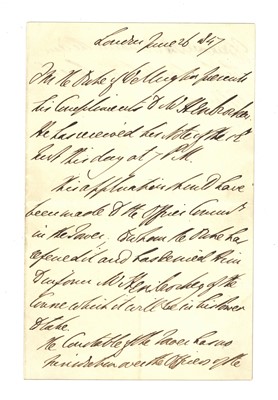 London June 26 1847
F M the Duke of Wellington presents
his Compliments to Mr
He has received his Note of the
Inst this day at 7 P.M.
This application should have
been made to the Officer
in the Tower, to whom the Duke has
referred it and has desired him
to inform Mr of the
Course which it will be in his Power
to take.
The Constable of the Tower has no
over the Offices of the